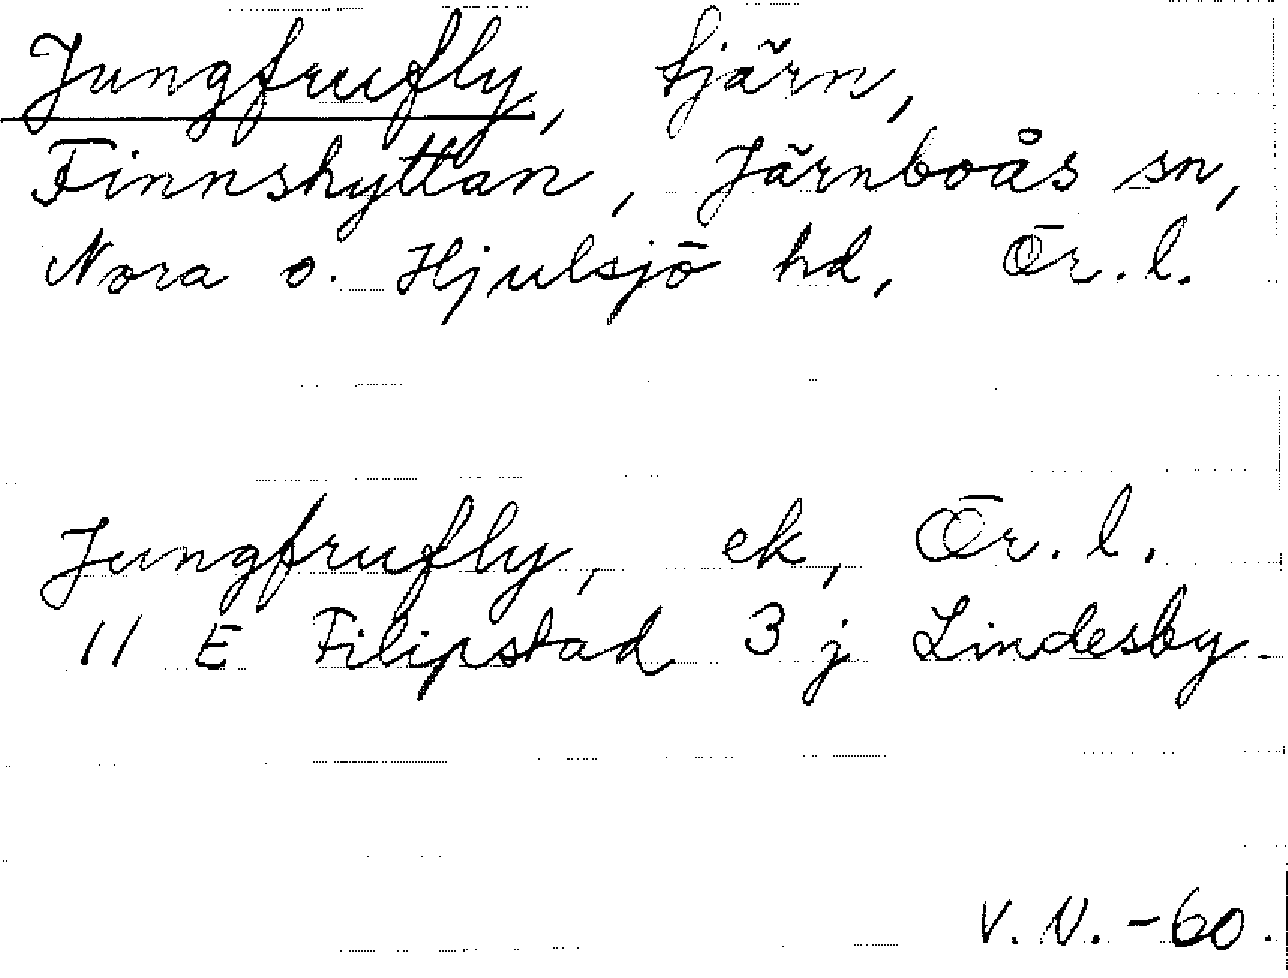 Jungfrufly, tjärn,
Finnshyttan, Järnboås sn,
Nora o. Hjulsjö hd, Ör. l.
Jungfrufly, ek, Ör. l.
11 E Filipstad 3 j Lindesby.
V. N. -60.